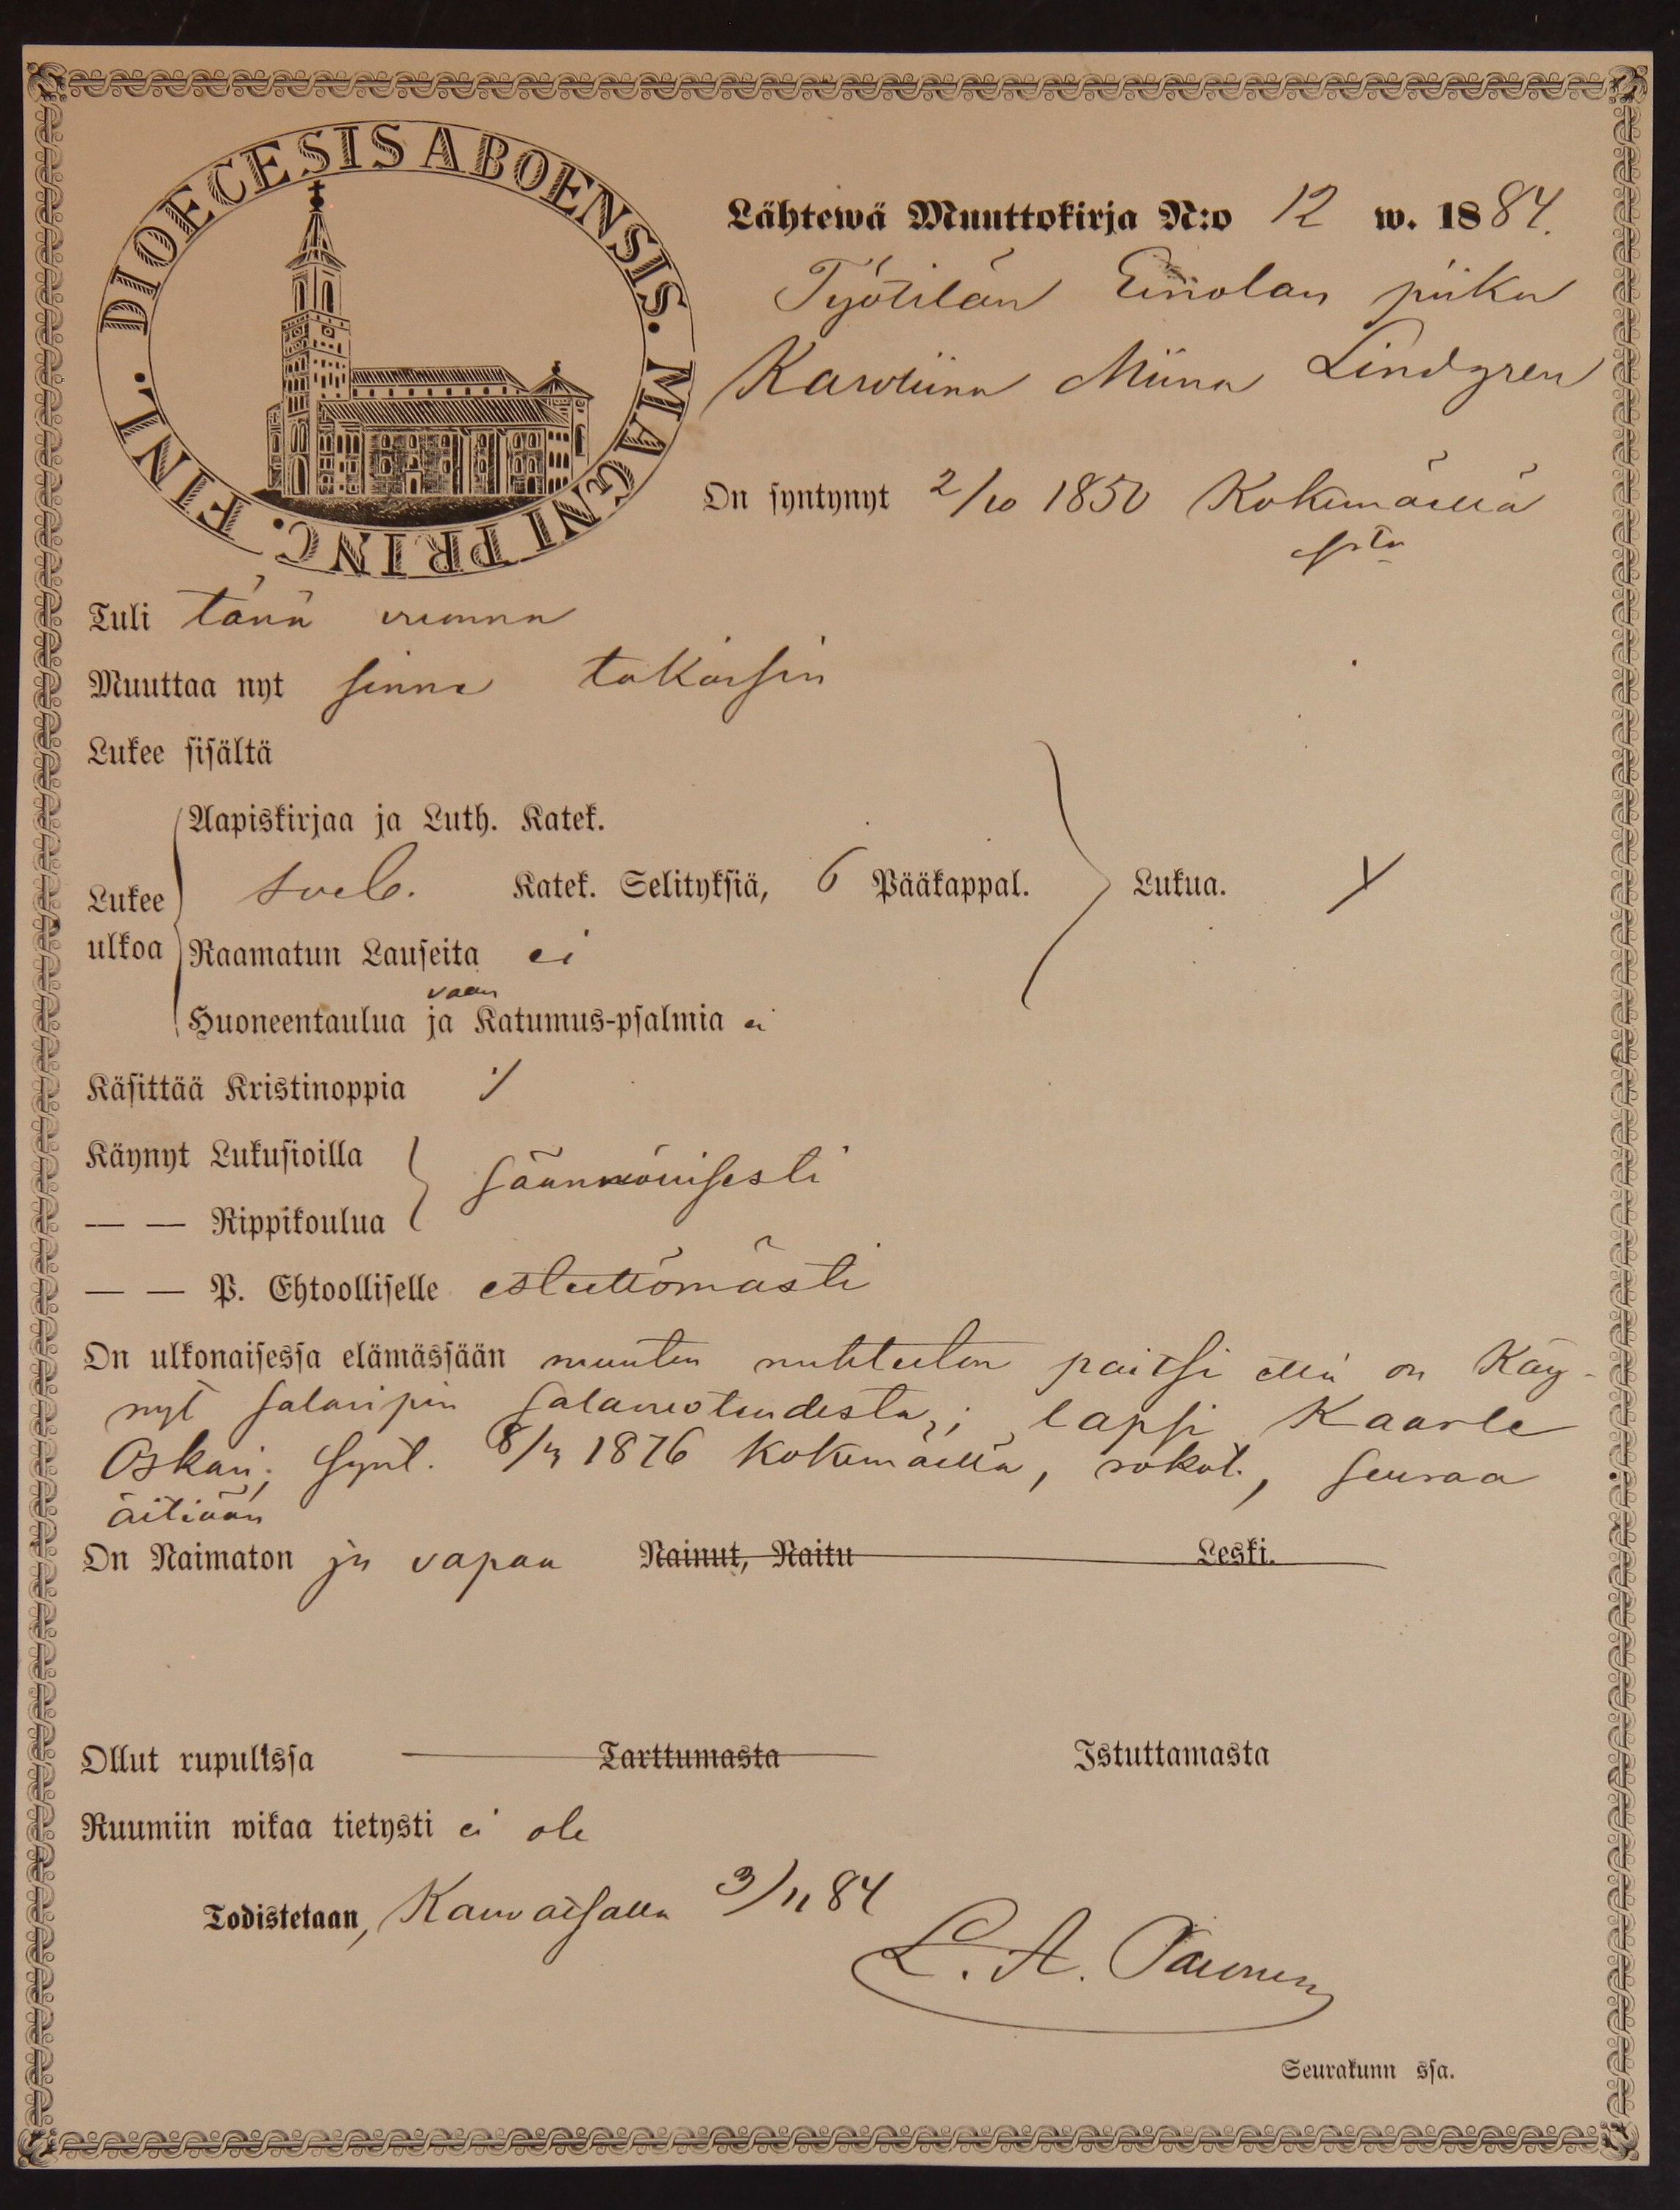 DIOECESIS ABOENSIS. MAGNI PRINC. FINL.
Lähtewä Muuttokirja N:o 12 w. 1884.
Työtilän Einolan piika
Karoliina Miina Lindgren
On syntynyt 2/10 1850 Kokemäellä
sta
Tuli tänä vuonna
Muuttaa nyt sinne takaisin
Lukee sisältä
Aapiskirjaa ja Luth. Katek.
Lukee ulkoa Sveb. Katek. Selityksiä, 6 Pääkappal. Lukua.
Raamatun Lauseita ei
vaan
Huoneentaulua ja Katumus-psalmia ei
Käsittää Kristinoppia
Käynyt Lukusioilla säännöllisesti
— — Rippikoulua
— — P. Ehtoolliselle esteettömästi
On ulkonaisessa elämässään muuten nuhteeton paitsi että on Käy-
nyt salaripin salavuoteudesta; lapsi Kaarle
Oskari, synt. 1876 Kokemäellä, rokot., seuraa
äitiään
On Naimaton ja vapaa Nainut, Naitu Leski.
Ollut rupulissa Tarttumasta Istuttamasta
Ruumiin wikaa tietysti ei ole
Todistetaan, Kauvatsalla 3/11 84
L. A. Paunu
Seurakunn ssa.